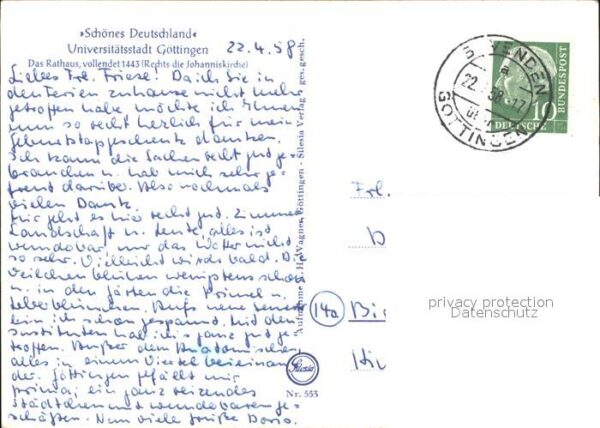 »Schönes Deutschland«
Universitätsstadt Göttingen
Das Rathaus, vollendet 1443 (Rechts die Johanniskirche)
22.4.58
Liebes Frl. Friese! Da ich Sie in
den Ferien zuhause nicht mehr
getroffen habe möchte ich Ihnen
nun so recht herzlich für mein
Geburtstagsgeschenk danken.
Ich kann die Sachen recht gut ge-
brauchen u. hab mich sehr ge-
freut darüber. Also nochmals
vielen Dank.
Mir geht es hier recht gut. Zimmer
Landschaft u. Leute, alles ist
wunderbar nur das Wetter nicht
so sehr. Vielleicht wirds bald. Die
Veilchen blühen wenigstens schon
u. in den Gärten die Primel u.
Leberblümchen. Aufs neue Semester
bin ich schon gespannt. Mit den
Instituten hab ich's ganz gut ge-
troffen. Außer dem Anatomischen
alles in einem Viertel beieinander
Göttingen gefällt mir
prima; ein ganz reizendes
Städtchen mit wunderbaren Ge-
schäften. Nun viele Grüße Doris.
Aufnahme u. H. Wagner, Göttingen - Silesia Verlag ges. gesch.
Silesia
Nr. 553
BOVENDEN
a
22.
58.-17
GÖTTINGEN
10
DEUTSCHE
BUNDESPOST
Frl.
14a
privacy protection
Datenschutz